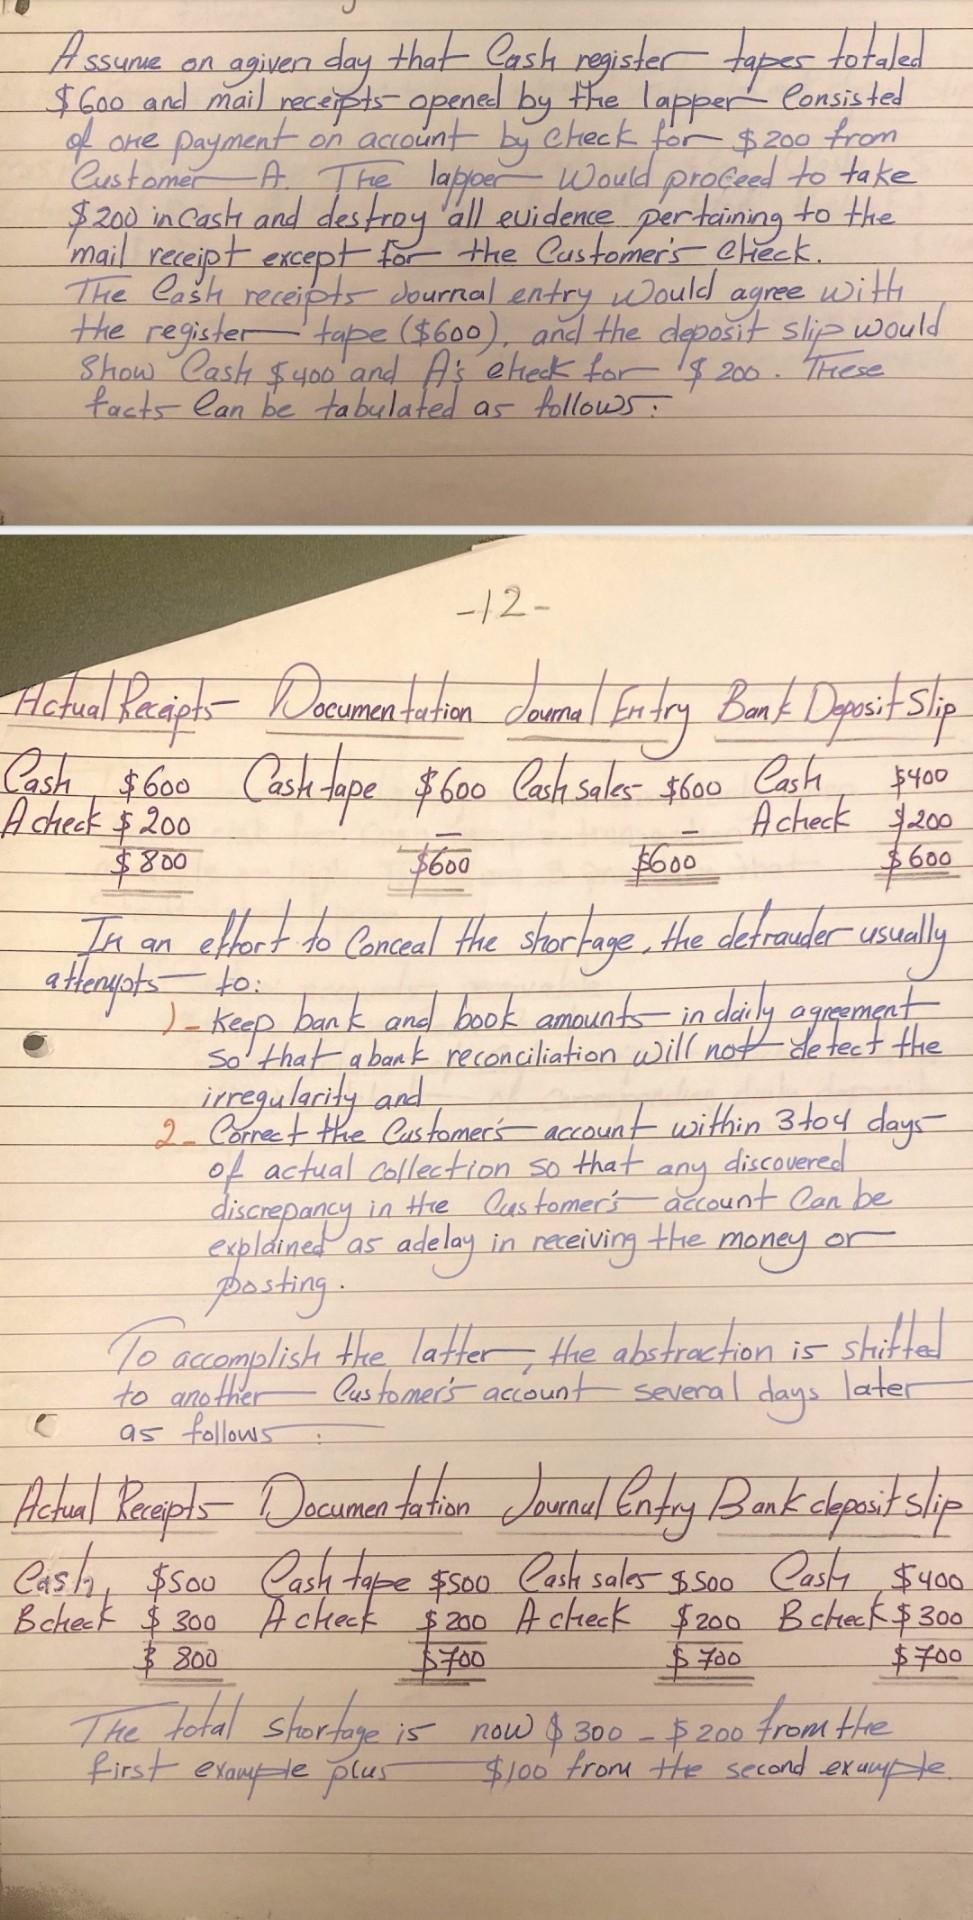 Assume on agiven day that Cash register tapes totaled
$600 and mail receipts opened by the lapper Consisted
of one payment on account by check for $200 from
Customer A. The lapper would proceed to take
$200 in cash and destroy all evidence pertaining to the
mail receipt except for the Customer's Check.
The Cash receipts Journal entry would agree with
the register tape ($600), and the deposit slip would
Show Cash $400 and A's check for $200. These
facts Can be tabulated as follows:
-12-
Actual Receipts Documentation Journal Entry Bank Deposit Slip
Cash $600 Cash tape $600 Cash sales $600 Cash $400
A check $200 – – A check $200
$800 $600 $600 $600
In an effort to Conceal the shortage, the defrauder usually
attempts to:
1)- Keep bank and book amounts in daily agreement
so that abank reconciliation will not detect the
irregularity and
2- Correct the Customer's account within 3to4 days
of actual collection so that any discovered
discrepancy in the Customer's account Can be
explained as adelay in receiving the money or
posting.
To accomplish the latter, the abstraction is shifted
to another Customer's account several days later
as follows:
Actual Receipts Documentation Journal Entry Bank deposit slip
Cash, $500 Cash tape $500 Cash sales $500 Cash $400
B check $300 A check $200 A check $200 B check $300
$800 $700 $700 $700
The total shortage is now $300 - $200 from the
first example plus $100 from the second example.